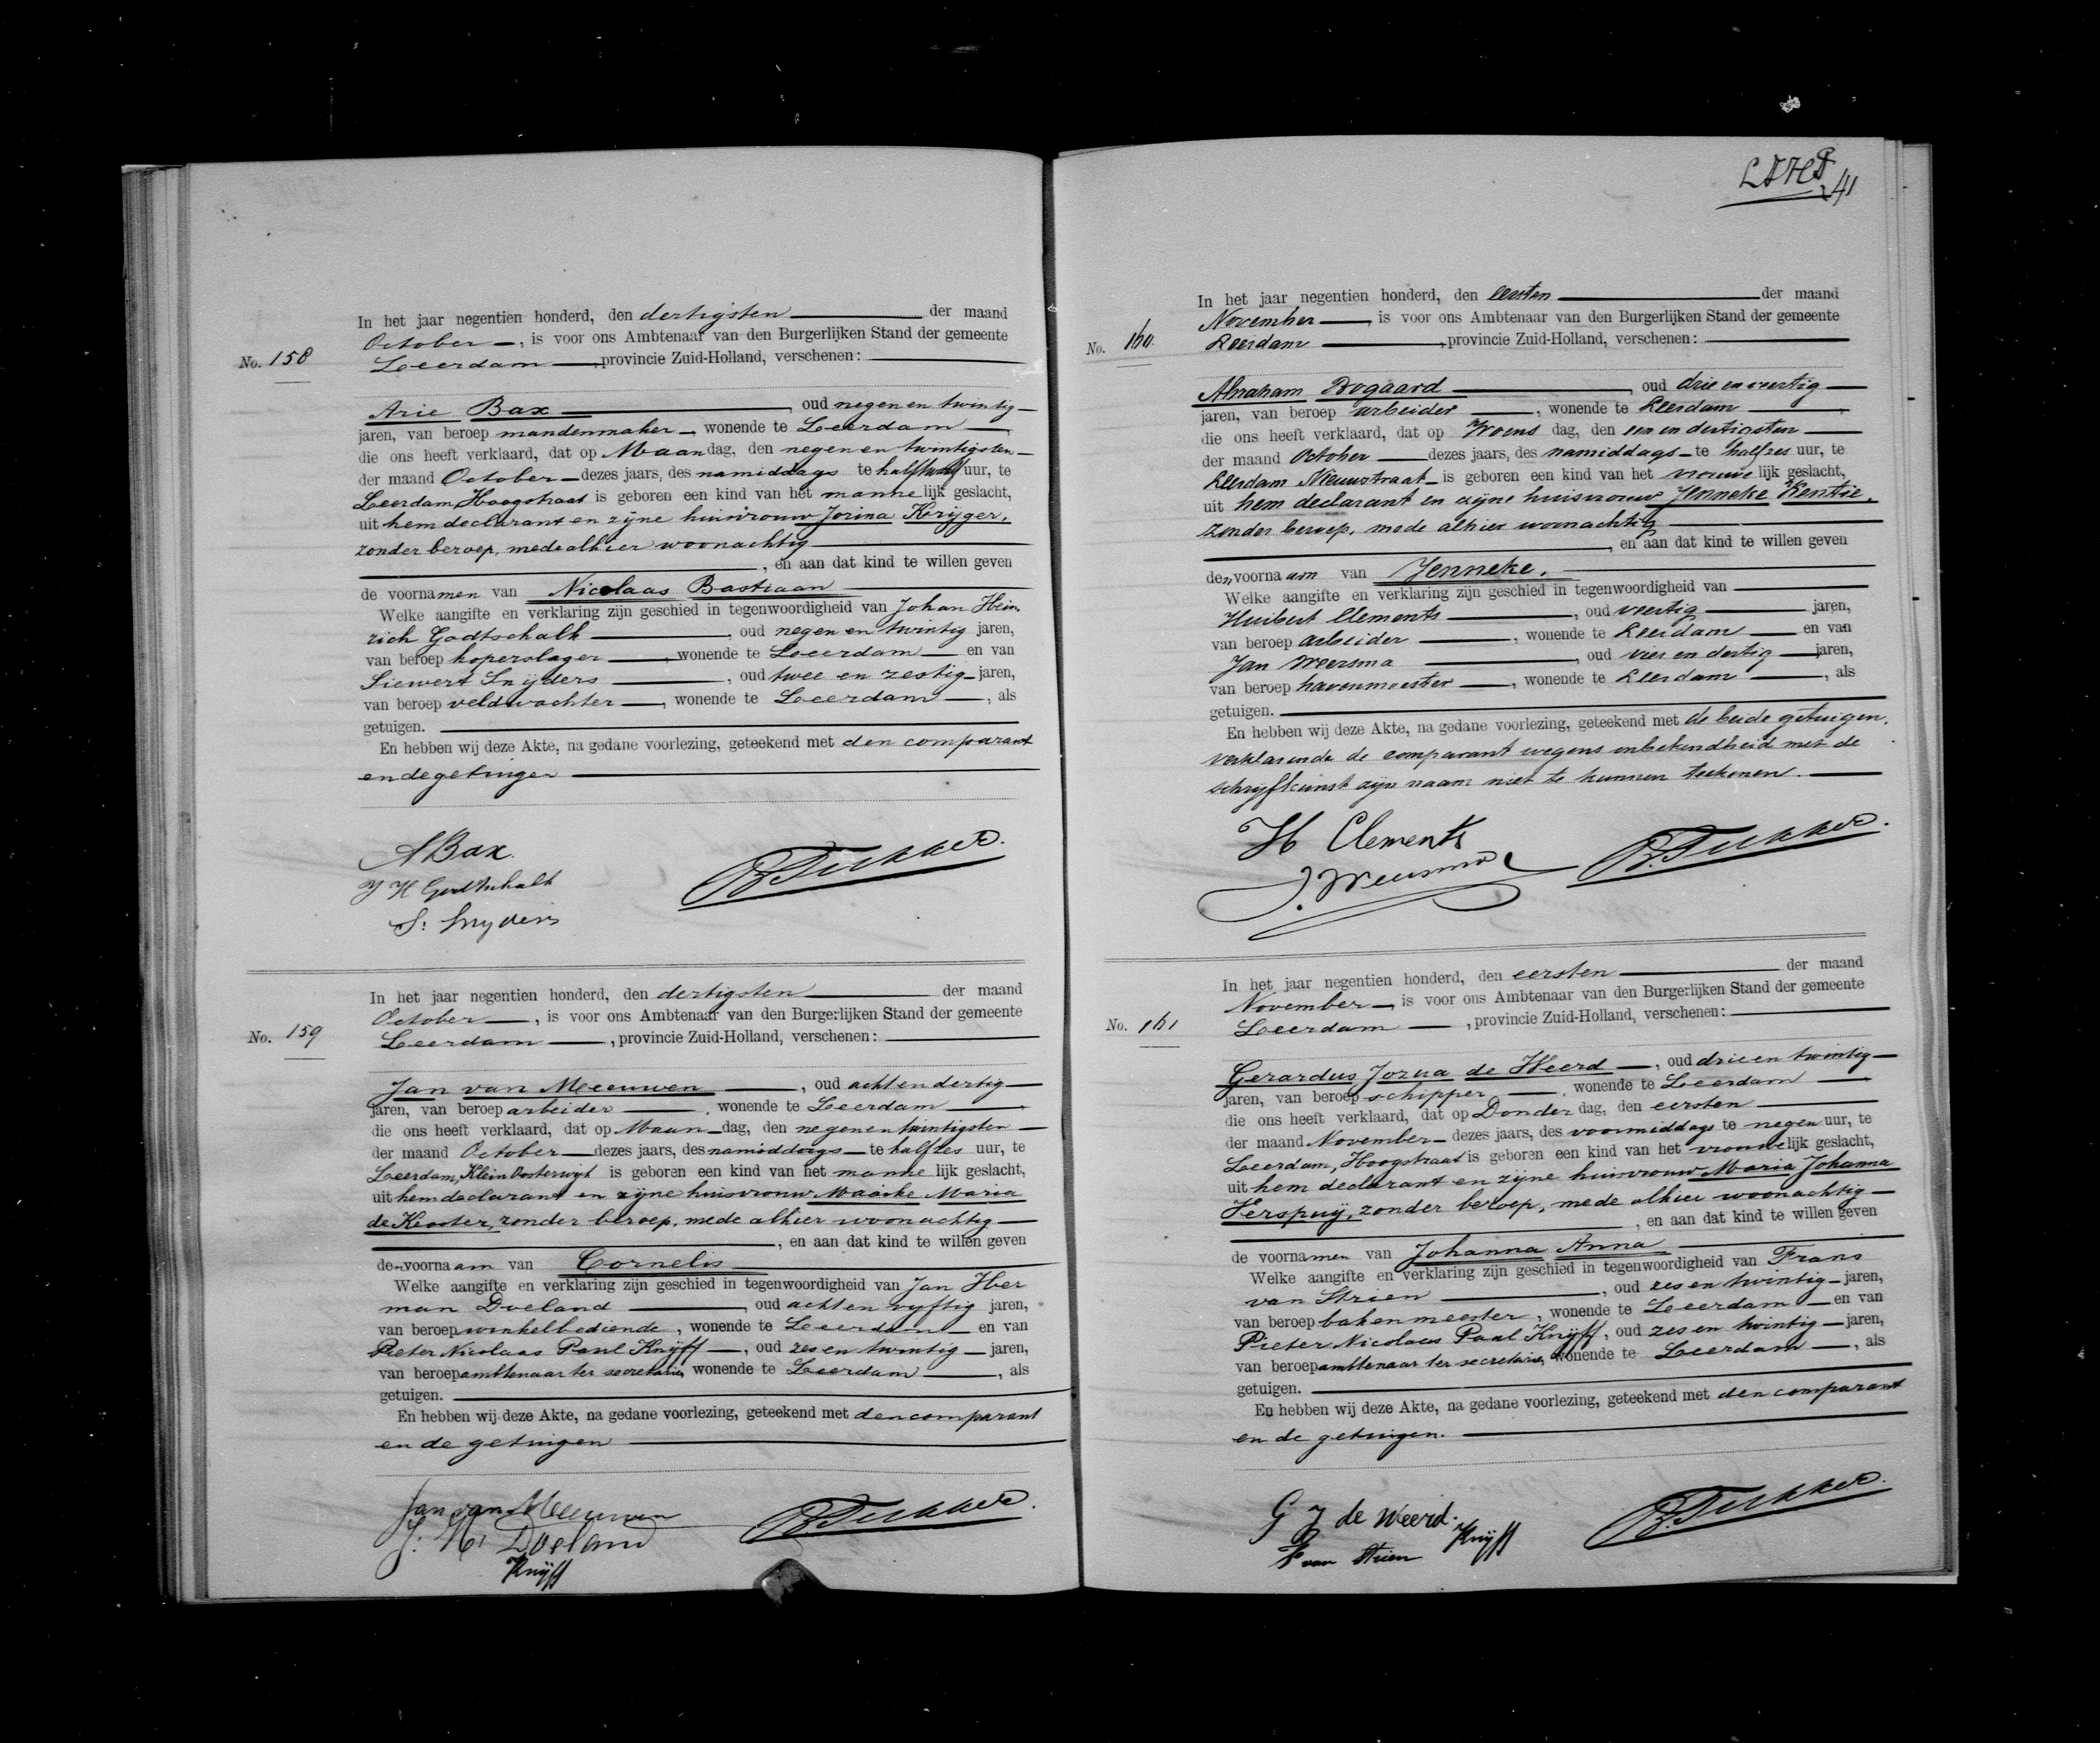 In het jaar negentien honderd, den dertigsten der maand
October, is voor ons Ambtenaar van den Burgerlijken Stand der gemeente
No. 158 Leerdam, provincie Zuid-Holland, verschenen:
Arie Bax, oud negen en twintig
jaren, van beroep mandenmaker, wonende te Leerdam
die ons heeft verklaard, dat op Maandag, den negen en twintigsten
der maand October dezes jaars, des namiddags te half twaalf uur, te
Leerdam, Hoogstraat is geboren een kind van het mannelijk geslacht,
uit hem declarant en zijne huisvrouw Jorina Krijger,
zonder beroep, mede alhier woonachtig
, en aan dat kind te willen geven
de voornamen van Nicolaas Bastiaan
Welke aangifte en verklaring zijn geschied in tegenwoordigheid van Johan Hein
rich Godtschalk, oud negen en twintig jaren,
van beroep koperslager, wonende te Leerdam en van
Siewert Snijders, oud twee en zestig jaren,
van beroep veldwachter, wonende te Leerdam, als
getuigen.
En hebben wij deze Akte, na gedane voorlezing, geteekend met den comparant
en de getuigen
A Bax.
J H Godtschalk
S. Snyders
In het jaar negentien honderd, den dertigsten der maand
October, is voor ons Ambtenaar van den Burgerlijken Stand der gemeente
No. 159 Leerdam, provincie Zuid-Holland, verschenen:
Jan van Meeuwen, oud acht en dertig
jaren, van beroep arbeider, wonende te Leerdam
die ons heeft verklaard, dat op Maandag, den negen en twintigsten
der maand October dezes jaars, des namiddags te half zes uur, te
Leerdam, Klein Oosterwijk is geboren een kind van het mannelijk geslacht,
uit hem declarant en zijne huisvrouw Maaike Maria
de Kooter, zonder beroep, mede alhier woonachtig
, en aan dat kind te willen geven
den voornaam van Cornelis
Welke aangifte en verklaring zijn geschied in tegenwoordigheid van Jan Her
man Doeland, oud acht en vijftig jaren,
van beroep winkelbediende, wonende te Leerdam en van
Pieter Nicolaas Paul Knijff, oud zes en twintig jaren,
van beroep ambtenaar ter secretarie, wonende te Leerdam, als
getuigen.
En hebben wij deze Akte, na gedane voorlezing, geteekend met den comparant
en de getuigen
Jan van Meeuwen
J. H. Doeland
Knijff
41
In het jaar negentien honderd, den eersten der maand
November, is voor ons Ambtenaar van den Burgerlijken Stand der gemeente
No. 160. Leerdam, provincie Zuid-Holland, verschenen:
Abraham Bogaard, oud drie en veertig
jaren, van beroep arbeider, wonende te Leerdam
die ons heeft verklaard, dat op Woensdag, den een en dertigsten
der maand October dezes jaars, des namiddags te half zes uur, te
Leerdam Nieuwstraat is geboren een kind van het vrouwelijk geslacht,
uit hem declarant en zijne huisvrouw Jenneke Rentie,
zonder beroep, mede alhier woonachtig
, en aan dat kind te willen geven
den voornaam van Jenneke.
Welke aangifte en verklaring zijn geschied in tegenwoordigheid van
Huibert Clements, oud veertig jaren,
van beroep arbeider, wonende te Leerdam en van
Jan Weersma, oud vier en dertig jaren,
van beroep havenmeester, wonende te Leerdam, als
getuigen.
En hebben wij deze Akte, na gedane voorlezing, geteekend met de beide getuigen,
verklarende de comparant wegens onbekendheid met de
schrijfkunst zijn naam niet te kunnen teekenen.
H Clements
J. Weersma
In het jaar negentien honderd, den eersten der maand
November, is voor ons Ambtenaar van den Burgerlijken Stand der gemeente
No. 161 Leerdam, provincie Zuid-Holland, verschenen:
Gerardus Jozua de Weerd, oud drie en twintig
jaren, van beroep schipper, wonende te Leerdam
die ons heeft verklaard, dat op Donderdag, den eersten
der maand November dezes jaars, des voormiddags te negen uur, te
Leerdam, Hoogstraat is geboren een kind van het vrouwelijk geslacht,
uit hem declarant en zijne huisvrouw Maria Johanna
Verspuij, zonder beroep, mede alhier woonachtig
, en aan dat kind te willen geven
de voornamen van Johanna Anna
Welke aangifte en verklaring zijn geschied in tegenwoordigheid van Frans
van Strien, oud zes en twintig jaren,
van beroep bakenmeester, wonende te Leerdam en van
Pieter Nicolaas Paul Knijff, oud zes en twintig jaren,
van beroep ambtenaar ter secretarie, wonende te Leerdam, als
getuigen.
En hebben wij deze Akte, na gedane voorlezing, geteekend met den comparant
en de getuigen.
G J de Weerd.
F van Strien Knijff